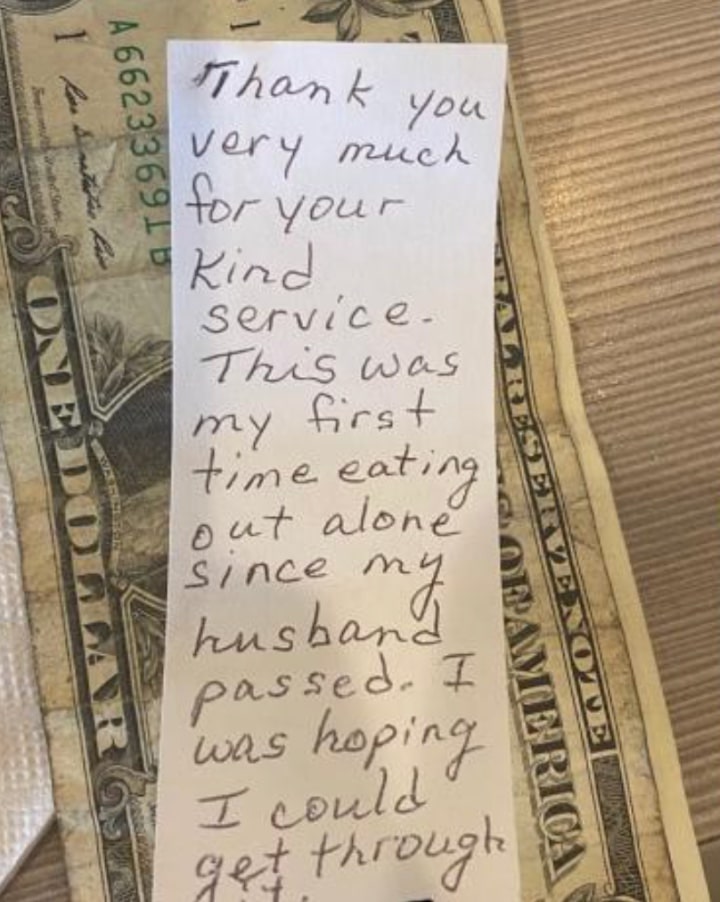 Thank you
very much
for your
kind
service.
This was
my first
time eating
out alone
since my
husband
passed. I
was hoping
I could
get through
it.
A66233691B
1
1
ONE DOLLAR
RAL RESERVE NOTE
S OF AMERICA